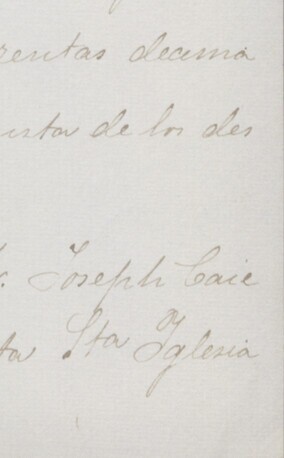 rentas decima
usta de los des
r. Joseph Caie
ta Sta Yglesia